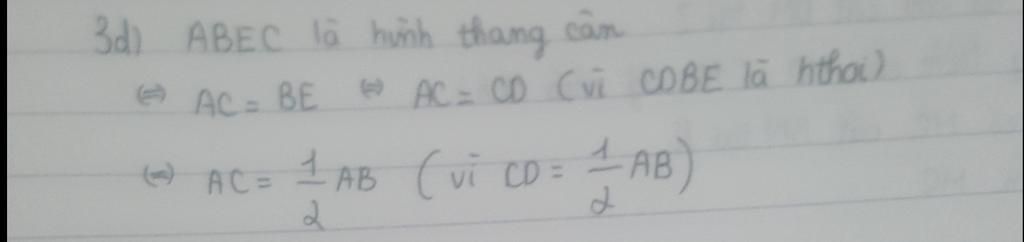 3d) ABEC là hình thang cân
⇔ AC = BE ⇔ AC = CD (vì CDBE là hthoi)
⇔ AC = 1/2 AB (vì CD = 1/2 AB)